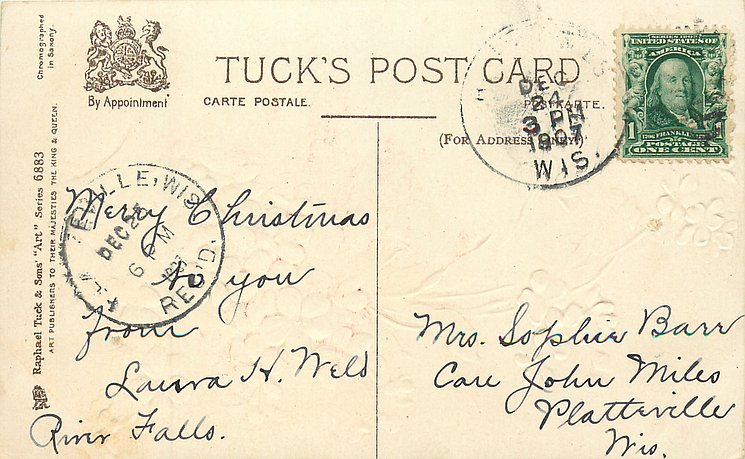 Chromographed
in Saxony.
Raphael Tuck & Sons' "Art" Series 6883
ART PUBLISHERS TO THEIR MAJESTIES THE KING & QUEEN.
By Appointment
TUCK'S POST CARD
CARTE POSTALE.
POSTKARTE.
(For Address Only.)
DEC
24
3 PM
1907
WIS.
SERIES 1902
UNITED STATES OF
AMERICA
1
FRANKLIN
POSTAGE
ONE CENT
EVILLE, WIS
DEC 25
6 PM
1907
REC'D.
Merry Christmas
to you
from
Laura H. Weld
River Falls.
Mrs. Sophie Barr
Care John Miles
Platteville
Wis.